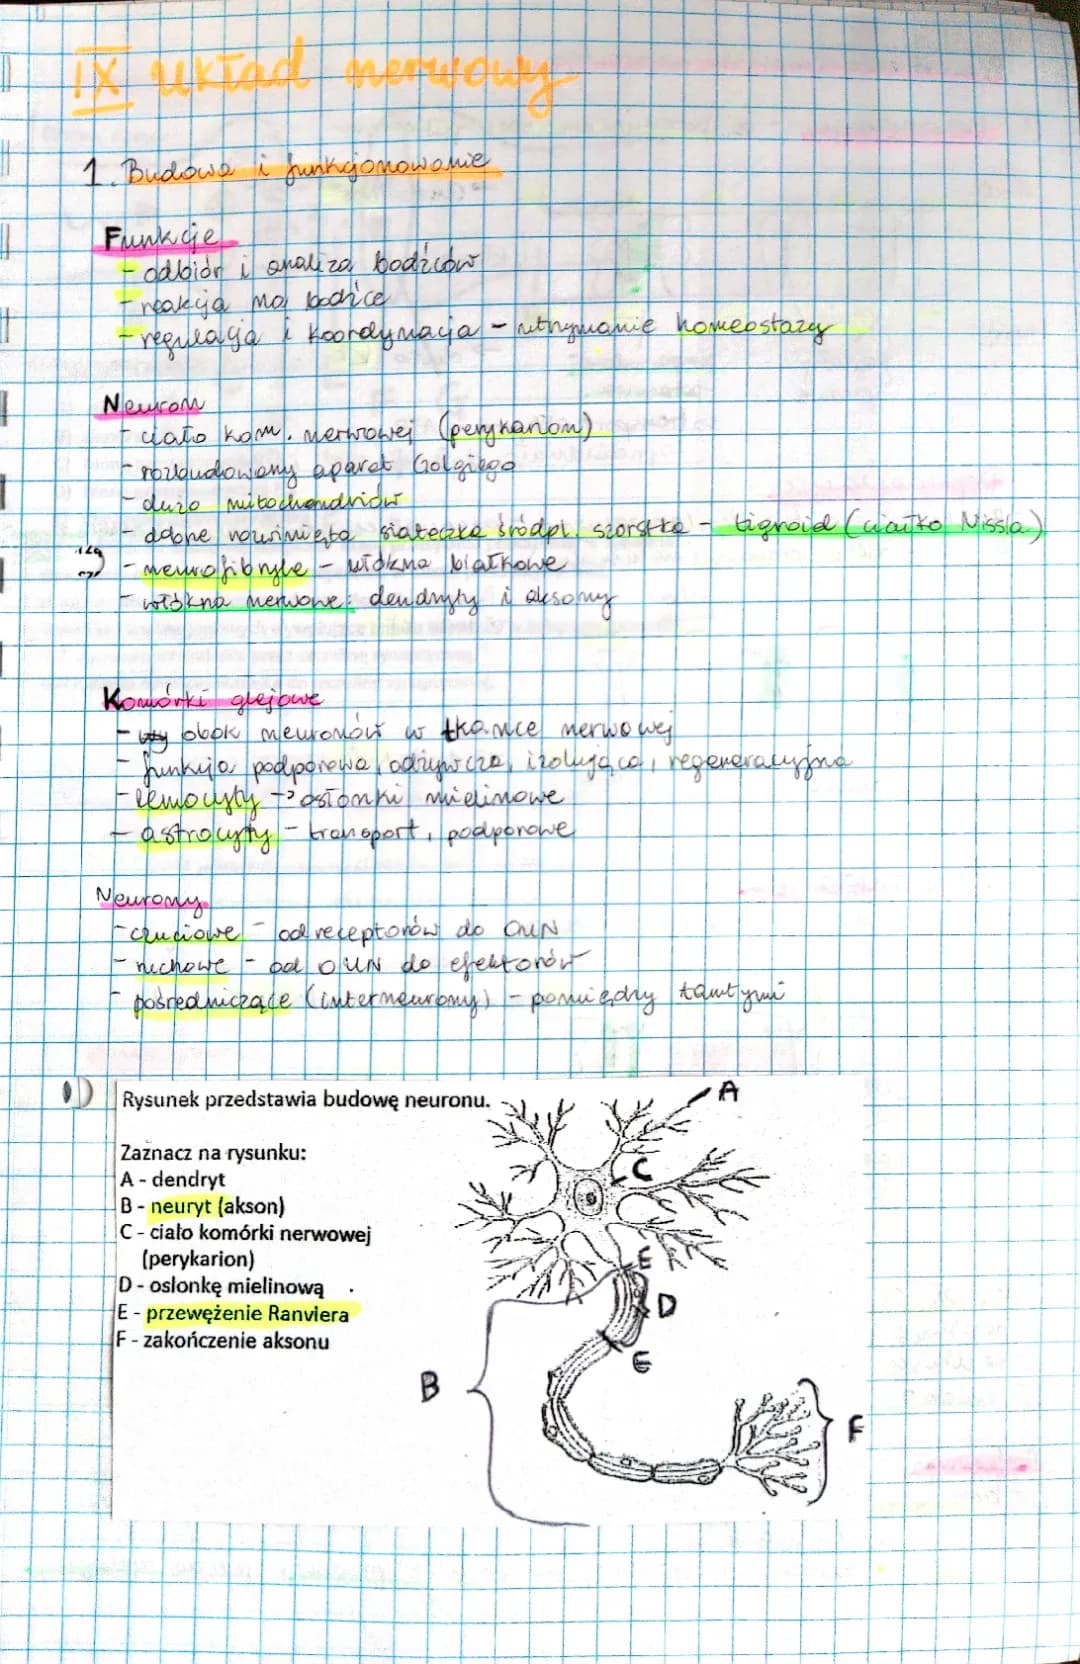 IX układ nerwowy
1. Budowa i funkcjonowanie
Funkcje
- odbiór i analiza bodźców
- reakcja na bodźce
- regulacja i koordynacja - utrzymanie homeostazy
Neuron
- ciało kom. nerwowej (perykarion)
- rozbudowany aparat Golgiego
- dużo mitochondriów
- dobrze rozwinięta siateczka śródpl. szorstka - tigroid (ciałko Nissla)
- neurofibryle - włókna białkowe
- włókna nerwowe: dendryty i aksony
Komórki glejowe
- obok neuronów w tkance nerwowej
- funkcja podporowa, odżywcza, izolująca, regeneracyjna
- lemocyty → osłonki mielinowe
- astrocyty - transport, podporowe
Neurony
- czuciowe - od receptorów do OUN
- ruchowe - od OUN do efektorów
- pośredniczące (interneurony) - pomiędzy tamtymi
Rysunek przedstawia budowę neuronu.
A
Zaznacz na rysunku:
A - dendryt
C
B - neuryt (akson)
C - ciało komórki nerwowej
(perykarion)
E
D - oslonkę mielinową
D
E - przewężenie Ranviera
F - zakończenie aksonu
E
B
F